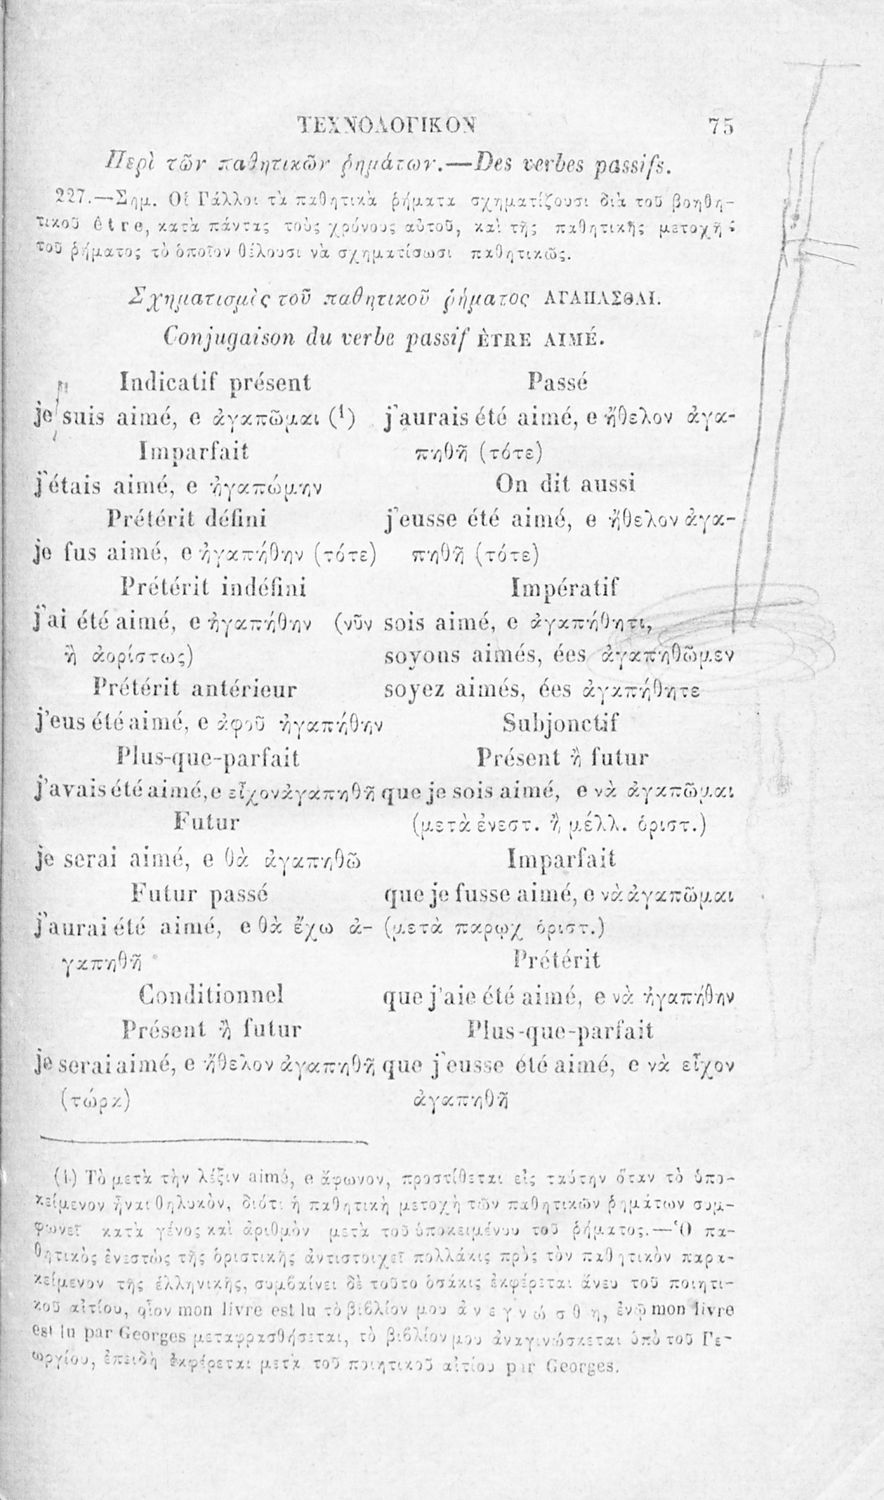 ΤΕΧΝΟΛΟΓΙΚΟΝ 75
Περὶ τῶν παθητικῶν ῥημάτων.—Des verbes passifs.
227.—Σημ. Οἱ Γάλλοι τὰ παθητικὰ ῥήματα σχηματίζουσι διὰ τοῦ βοηθη-
τικοῦ être, κατὰ πάντας τοὺς χρόνους αὐτοῦ, καὶ τῆς παθητικῆς μετοχῆς
τοῦ ῥήματος τὸ ὁποῖον θέλουσι νὰ σχηματίσωσι παθητικῶς.
Σχηματισμὸς τοῦ παθητικοῦ ῥήματος ΑΓΑΠΑΣΘΑΙ.
Conjugaison du verbe passif ÊTRE AIMÉ.
Indicatif présent
je suis aimé, e ἀγαπῶμαι (¹)
Imparfait
j'étais aimé, e ἠγαπώμην
Prétérit défini
je fus aimé, e ἠγαπήθην (τότε)
Prétérit indéfini
j'ai été aimé, e ἠγαπήθην (νῦν
ἢ ἀορίστως)
Prétérit antérieur
j'eus été aimé, e ἀφοῦ ἠγαπήθην
Plus-que-parfait
j'avais été aimé, e εἶχον ἀγαπηθῆ
Futur
je serai aimé, e θὰ ἀγαπηθῶ
Futur passé
j'aurai été aimé, e θὰ ἔχω ἀ-
γαπηθῆ
Conditionnel
Présent ἢ futur
je serai aimé, e ἤθελον ἀγαπηθῆ
(τώρα)
Passé
j'aurais été aimé, e ἤθελον ἀγα-
πηθῆ (τότε)
On dit aussi
j'eusse été aimé, e ἤθελον ἀγα-
πηθῆ (τότε)
Impératif
sois aimé, e ἀγαπήθητι,
soyons aimés, ées ἀγαπηθῶμεν
soyez aimés, ées ἀγαπήθητε
Subjonctif
Présent ἢ futur
que je sois aimé, e νὰ ἀγαπῶμαι
(μετὰ ἐνεστ. ἢ μέλλ. ὁριστ.)
Imparfait
que je fusse aimé, e νὰ ἀγαπῶμαι
(μετὰ παρῳχ ὁριστ.)
Prétérit
que j'aie été aimé, e νὰ ἠγαπήθην
Plus-que-parfait
que j'eusse été aimé, e νὰ εἶχον
ἀγαπηθῆ
(1) Τὸ μετὰ τὴν λέξιν aimé, e ἄφωνον, προστίθεται εἰς ταύτην ὅταν τὸ ὑπο-
κείμενον ἦναι θηλυκὸν, διότι ἡ παθητικὴ μετοχὴ τῶν παθητικῶν ῥημάτων συμ-
φωνεῖ κατὰ γένος καὶ ἀριθμὸν μετὰ τοῦ ὑποκειμένου τοῦ ῥήματος.—Ὁ πα-
θητικὸς ἐνεστὼς τῆς ὁριστικῆς ἀντιστοιχεῖ πολλάκις πρὸς τὸν παθητικὸν παρα-
κείμενον τῆς ἑλληνικῆς, συμβαίνει δὲ τοῦτο ὁσάκις ἐκφέρεται ἄνευ τοῦ ποιητι-
κοῦ αἰτίου, οἷον mon livre est lu τὸ βιβλίον μου ἀνεγνώσθη, ἐνῷ mon livre
est lu par Georges μεταφρασθήσεται, τὸ βιβλίον μου ἀναγινώσκεται ὑπὸ τοῦ Γε-
ωργίου, ἐπειδὴ ἐκφέρεται μετὰ τοῦ ποιητικοῦ αἰτίου par Georges.